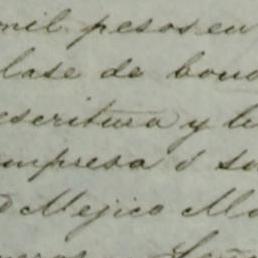 mil pesos en
lase de bono
escritura y la
empresa ó su
Mejico Ma